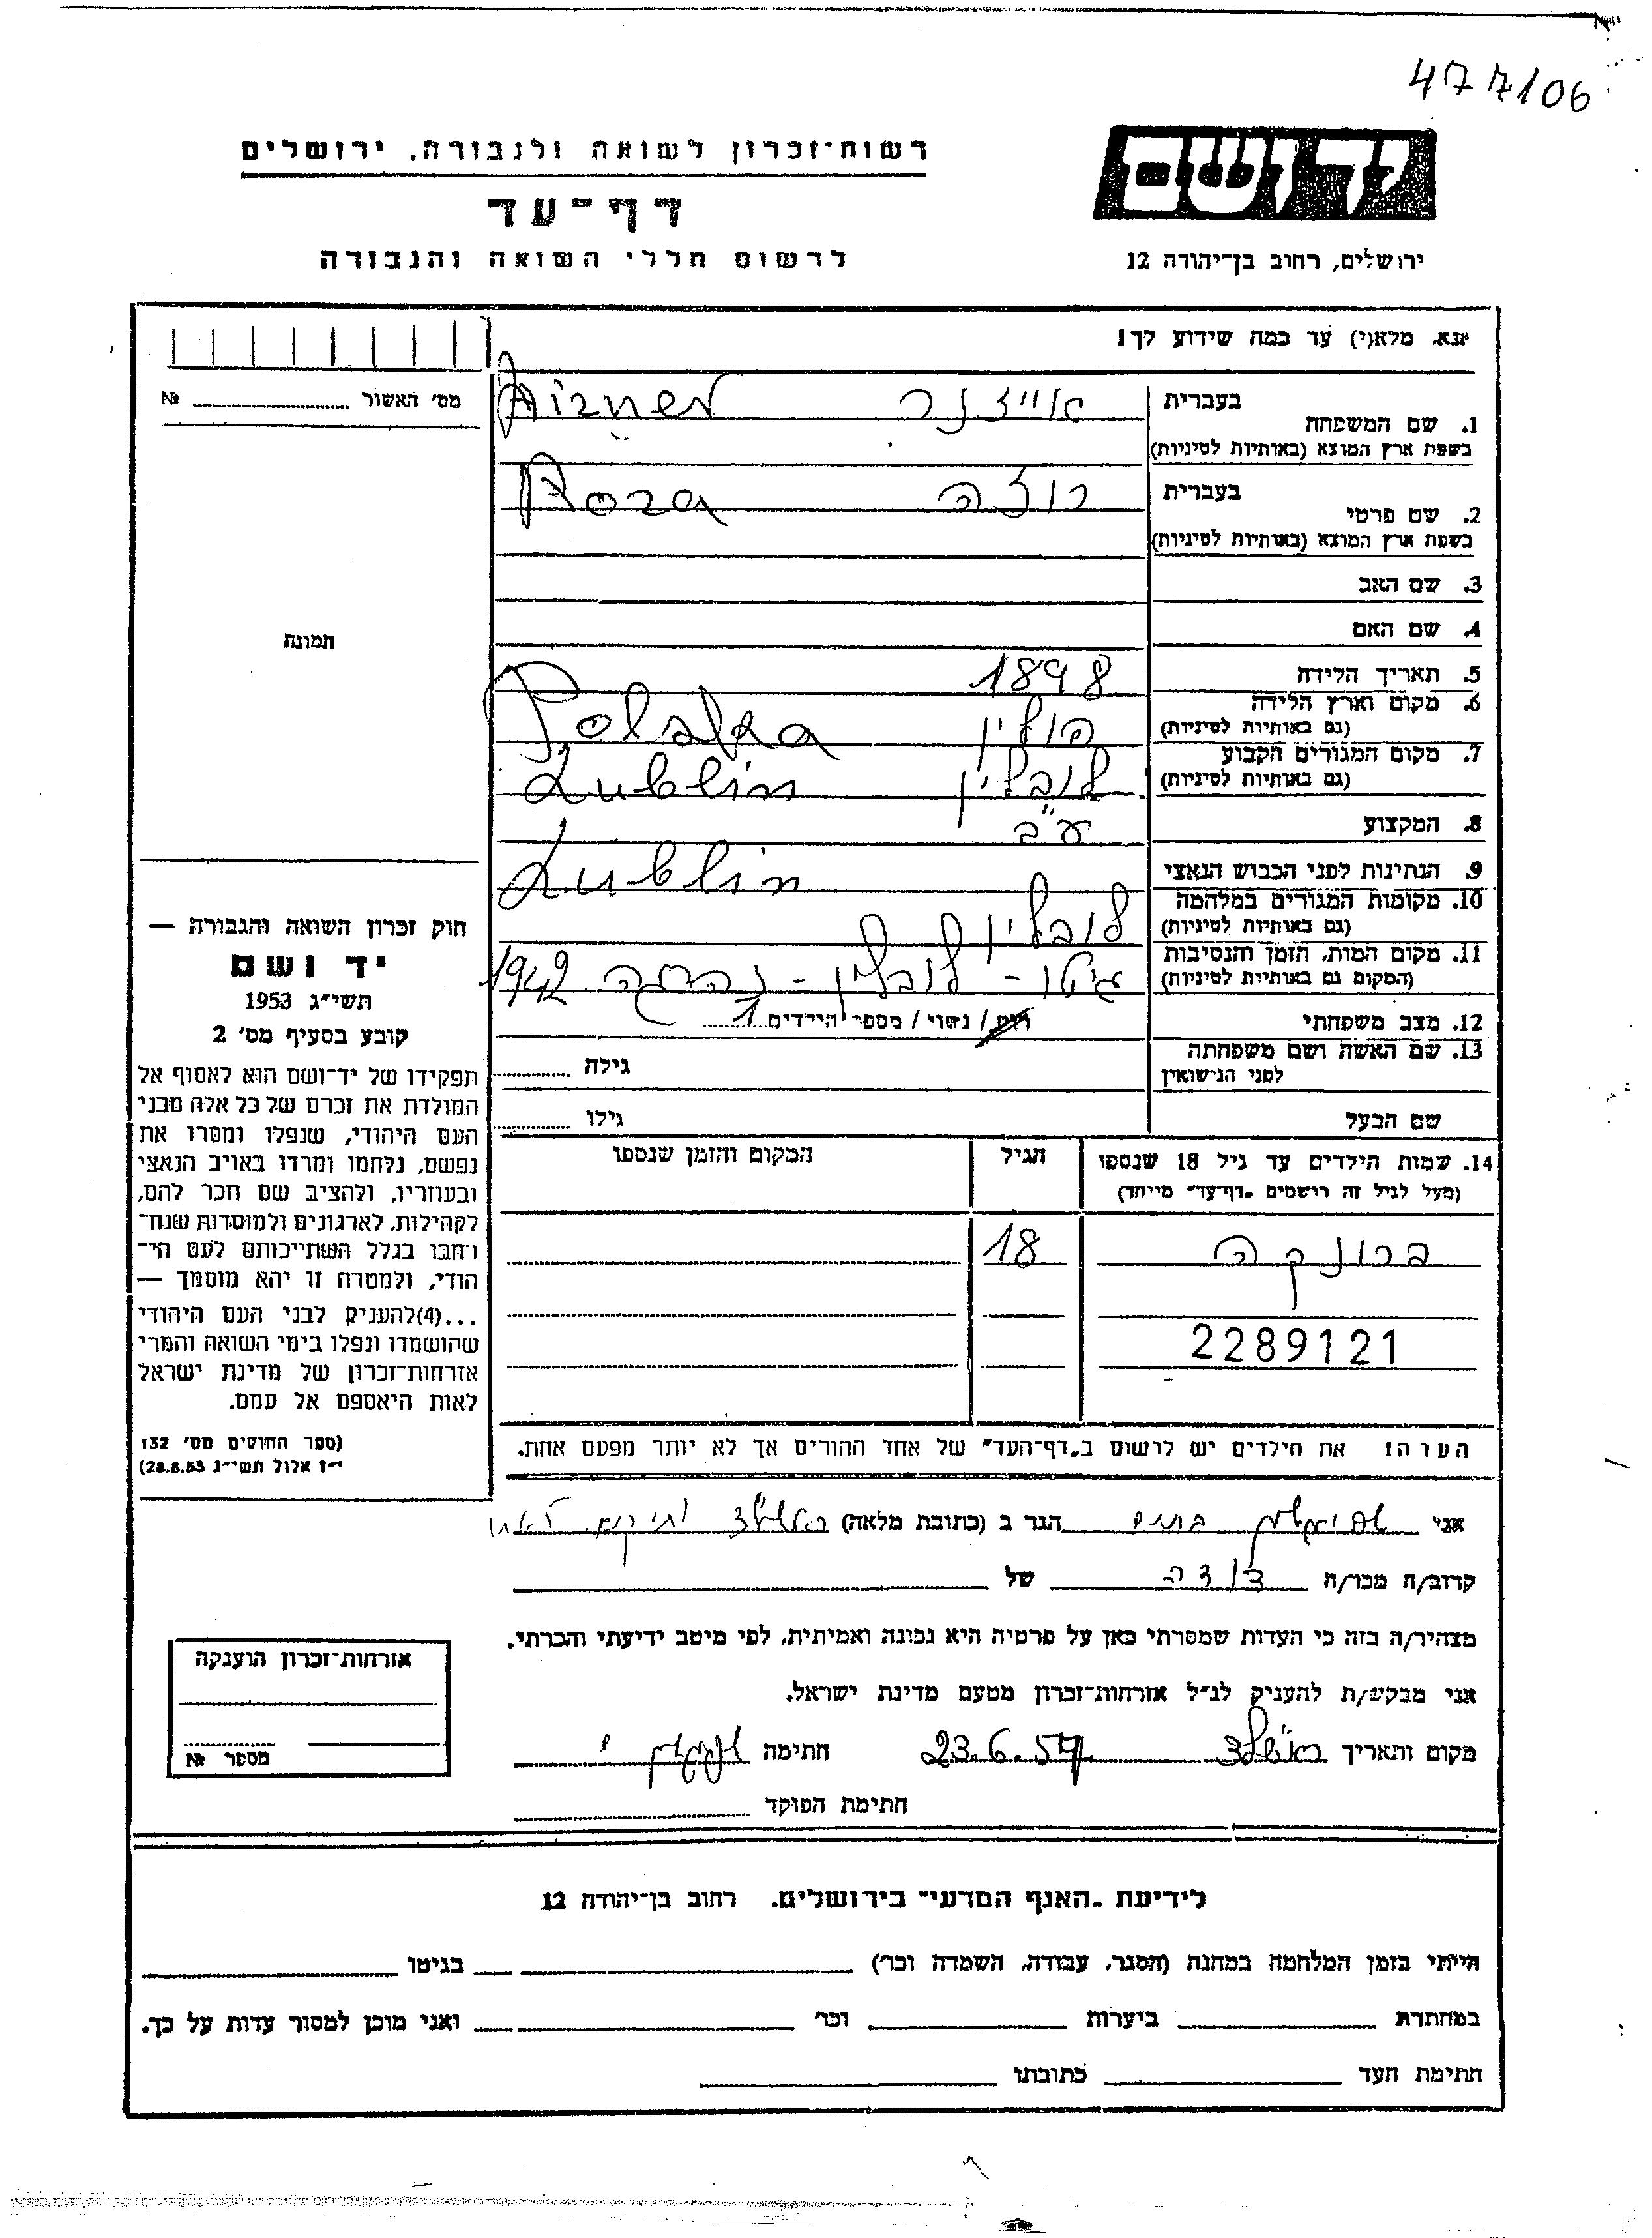 477106
רשות־זכרון לשואה ולגבורה, ירושלים
יד ושם
דף־עד
לרשום חללי השואה והגבורה
ירושלים, רחוב בן־יהודה 12
אנא, מלא(י) עד כמה שידוע לך!
מס׳ האשור №
1. שם המשפחה בעברית אייזנר Aizner
בשפת ארץ המוצא (באותיות לטיניות)
2. שם פרטי בעברית רוזה Roza
בשפת ארץ המוצא (באותיות לטיניות)
3. שם האב
4. שם האם
תמונה
5. תאריך הלידה 1898
6. מקום וארץ הלידה
(גם באותיות לטיניות) פולין Polska
7. מקום המגורים הקבוע
(גם באותיות לטיניות) לובלין Lublin
8. המקצוע ע"ב
9. הנתינות לפני הכבוש הנאצי Lublin
10. מקומות המגורים במלחמה
(גם באותיות לטיניות) לובלין
11. מקום המות, הזמן והנסיבות
(המקום גם באותיות לטיניות) גיטו - לובלין - נהרגה 1942
12. מצב משפחתי רווק / נשוי / מספר הילדים 1
13. שם האשה ושם משפחתה
לפני הנישואין גילה
שם הבעל גילו
14. שמות הילדים עד גיל 18 שנספו הגיל המקום והזמן שנספו
(מעל לגיל זה רושמים „דף־עד” מיוחד)
ברונקה 18
2289121
הערה! את הילדים יש לרשום ב„דף־העד” של אחד ההורים אך לא יותר מפעם אחת.
חוק זכרון השואה והגבורה —
יד ושם
תשי״ג 1953
קובע בסעיף מס׳ 2
תפקידו של יד־ושם הוא לאסוף אל
המולדת את זכרם של כל אלה מבני
העם היהודי, שנפלו ומסרו את
נפשם, נלחמו ומרדו באויב הנאצי
ובעוזריו, ולהציב שם וזכר להם,
לקהילות, לארגונים ולמוסדות שנח־
רבו בגלל השתייכותם לעם הי־
הודי, ולמטרה זו יהא מוסמך —
...(4)להעניק לבני העם היהודי
שהושמדו ונפלו בימי השואה והמרי
אזרחות־זכרון של מדינת ישראל
לאות היאספם אל עמם.
(ספר החוקים מס׳ 132
י״ז אלול תשי״ג 28.8.53)
אני הגר ב (כתובת מלאה)
קרוב/ה מכר/ה דודה של
מצהיר/ה בזה כי העדות שמסרתי כאן על פרטיה היא נכונה ואמיתית, לפי מיטב ידיעתי והכרתי.
אני מבקש/ת להעניק לנ״ל אזרחות־זכרון מטעם מדינת ישראל.
מקום ותאריך ראשל"צ 23.6.57 חתימה
חתימת הפוקד
אזרחות־זכרון הוענקה
מספר №
לידיעת „האגף המדעי” בירושלים, רחוב בן־יהודה 12
הייתי בזמן המלחמה במחנה (הסגר, עבודה, השמדה וכו׳) בגיטו
במחתרת ביערות וכו׳ ואני מוכן למסור עדות על כך.
חתימת העד כתובתו